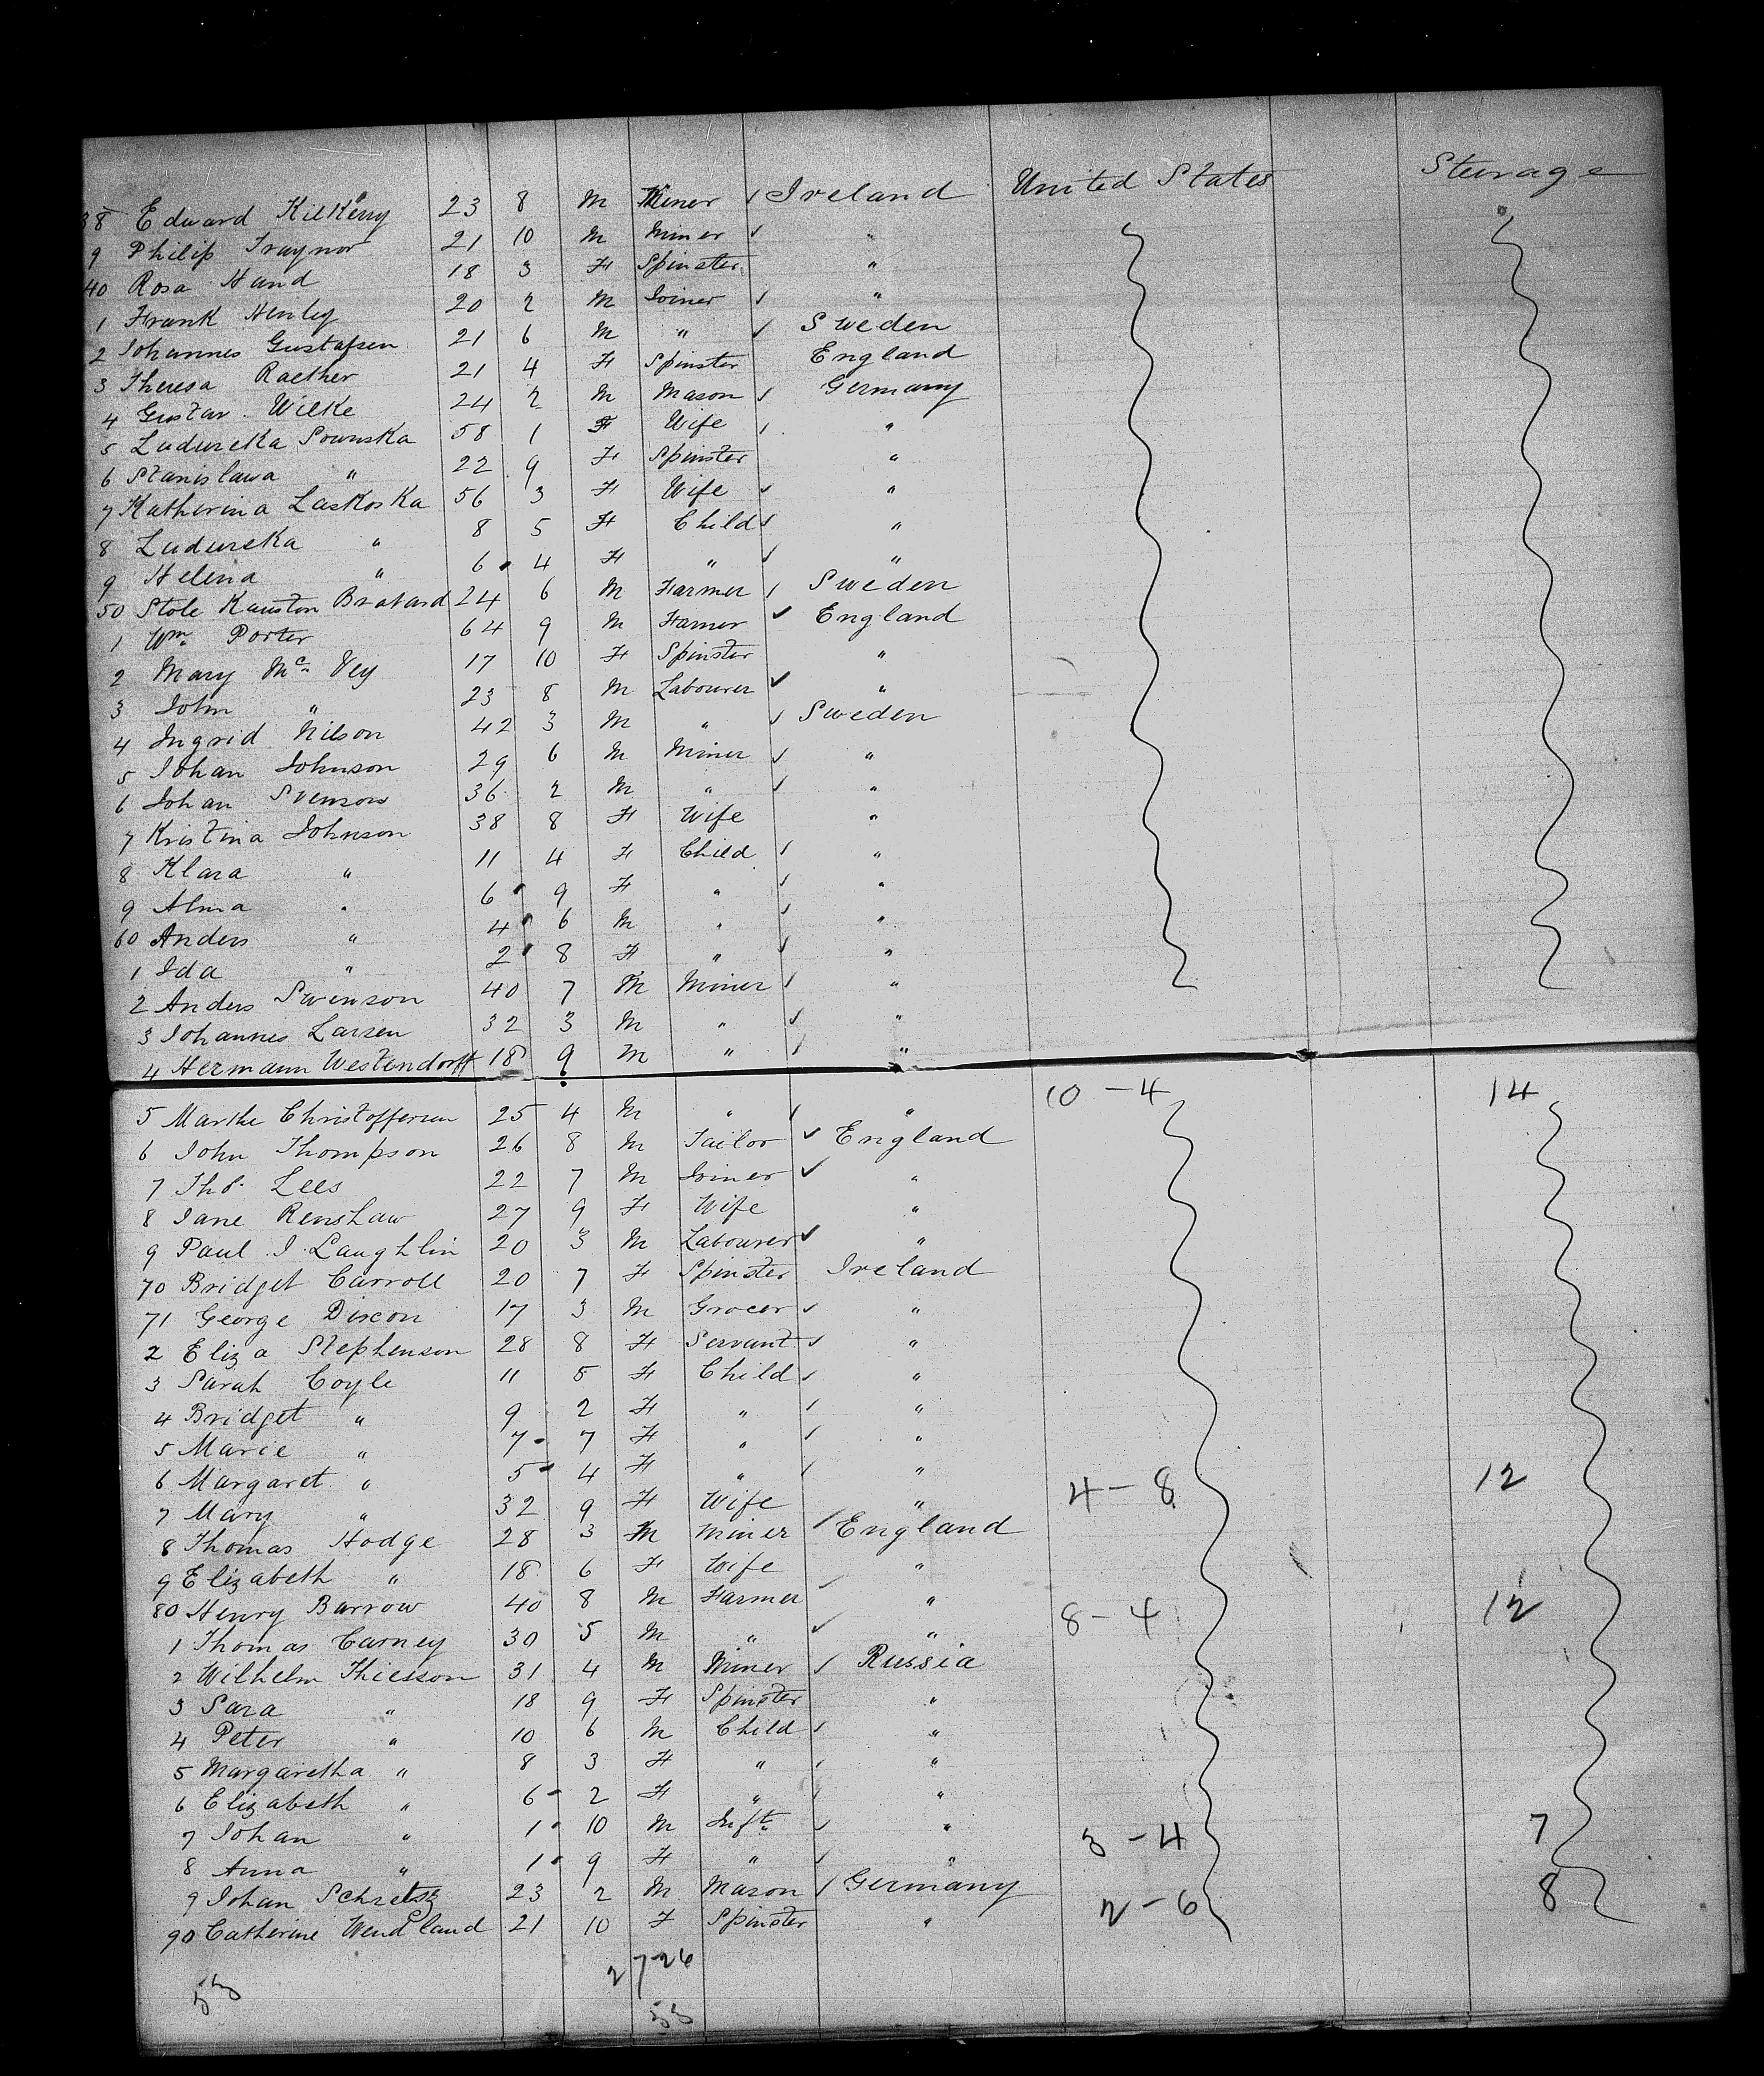 38 Edward Kilkerry 23 8 M Miner ✓ Ireland United States Steerage
9 Philip Traynor 21 10 M Miner ✓ "
40 Rosa Hand 18 3 F Spinster "
1 Frank Henley 20 2 M Joiner ✓ "
2 Johannes Gustafsen 21 6 M " ✓ Sweden
3 Theresa Raether 21 4 F Spinster England
4 Gustav Wilke 24 2 M Mason ✓ Germany
5 Ludureka Sownska 58 1 F Wife ✓ "
6 Stanislawa " 22 9 F Spinster "
7 Katherina Laskoska 56 3 F Wife ✓ "
8 Ludureka " 8 5 F Child ✓ "
9 Helena " 6 4 F " ✓ "
50 Stole Kauston Bratard 24 6 M Farmer ✓ Sweden
1 Wm. Porter 64 9 M Farmer ✓ England
2 Mary Mc. Vey 17 10 F Spinster "
3 John " 23 8 M Labourer ✓ "
4 Ingrid Nilson 42 3 M " ✓ Sweden
5 Johan Johnson 29 6 M Miner ✓ "
6 Johan Svenson 36 2 M " ✓ "
7 Kristina Johnson 38 8 F Wife "
8 Klara " 11 4 F Child ✓ "
9 Alma " 6 9 F " ✓ "
60 Anders " 4 6 M " ✓ "
1 Ida " 2 8 F " ✓ "
2 Anders Swenson 40 7 M Miner ✓ "
3 Johannes Larsen 32 3 M " ✓ "
4 Hermann Westendorff 18 9 M " ✓ "
5 Marthe Christoffersen 25 4 M " ✓ " 10 - 4 14
6 John Thompson 26 8 M Tailor ✓ England
7 Thos. Lees 22 7 M Joiner ✓ "
8 Jane Renshaw 27 9 F Wife "
9 Paul J. Laughlin 20 3 M Labourer ✓ "
70 Bridget Carroll 20 7 F Spinster Ireland
71 George Dixon 17 3 M Grocer ✓ "
2 Eliza Stephenson 28 8 F Servant ✓ "
3 Sarah Coyle 11 5 F Child ✓ "
4 Bridget " 9 2 F " ✓ "
5 Marie " 7 7 F " ✓ "
6 Margaret " 5 4 F " ✓ " 4 - 8 12
7 Mary " 32 9 F Wife "
8 Thomas Hodge 28 3 M Miner ✓ England
9 Elizabeth " 18 6 F Wife "
80 Henry Barrow 40 8 M Farmer ✓ " 8 - 4 12
1 Thomas Carney 30 5 M " ✓ "
2 Wilhelm Thiesson 31 4 M Miner ✓ Russia
3 Sara " 18 9 F Spinster "
4 Peter " 10 6 M Child ✓ "
5 Margaretha " 8 3 F " ✓ "
6 Elizabeth " 6 2 F " ✓ "
7 Johan " 1 10 M Inft. ✓ " 3 - 4 7
8 Anna " 1 9 F " ✓ "
9 Johan Schretsz 23 2 M Mason ✓ Germany 2 - 6 8
90 Catherine Wendland 21 10 F Spinster "
27 26
53 53